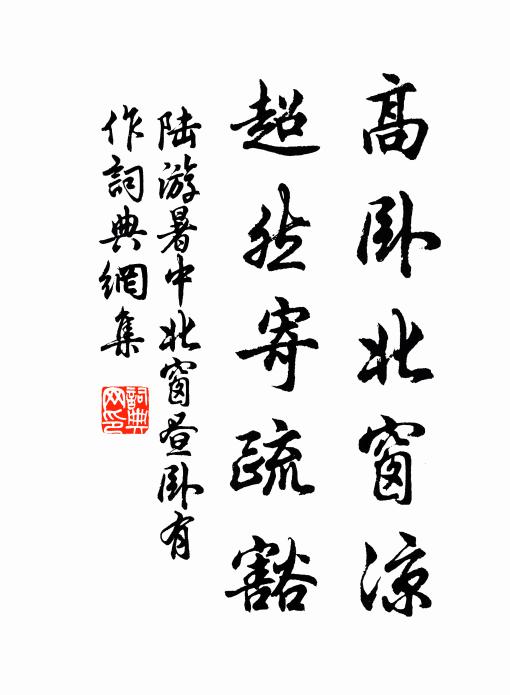 高卧北窗凉
超然寄疏豁
陆游暑中北窗昼卧有
作词典網集
詞典
网印